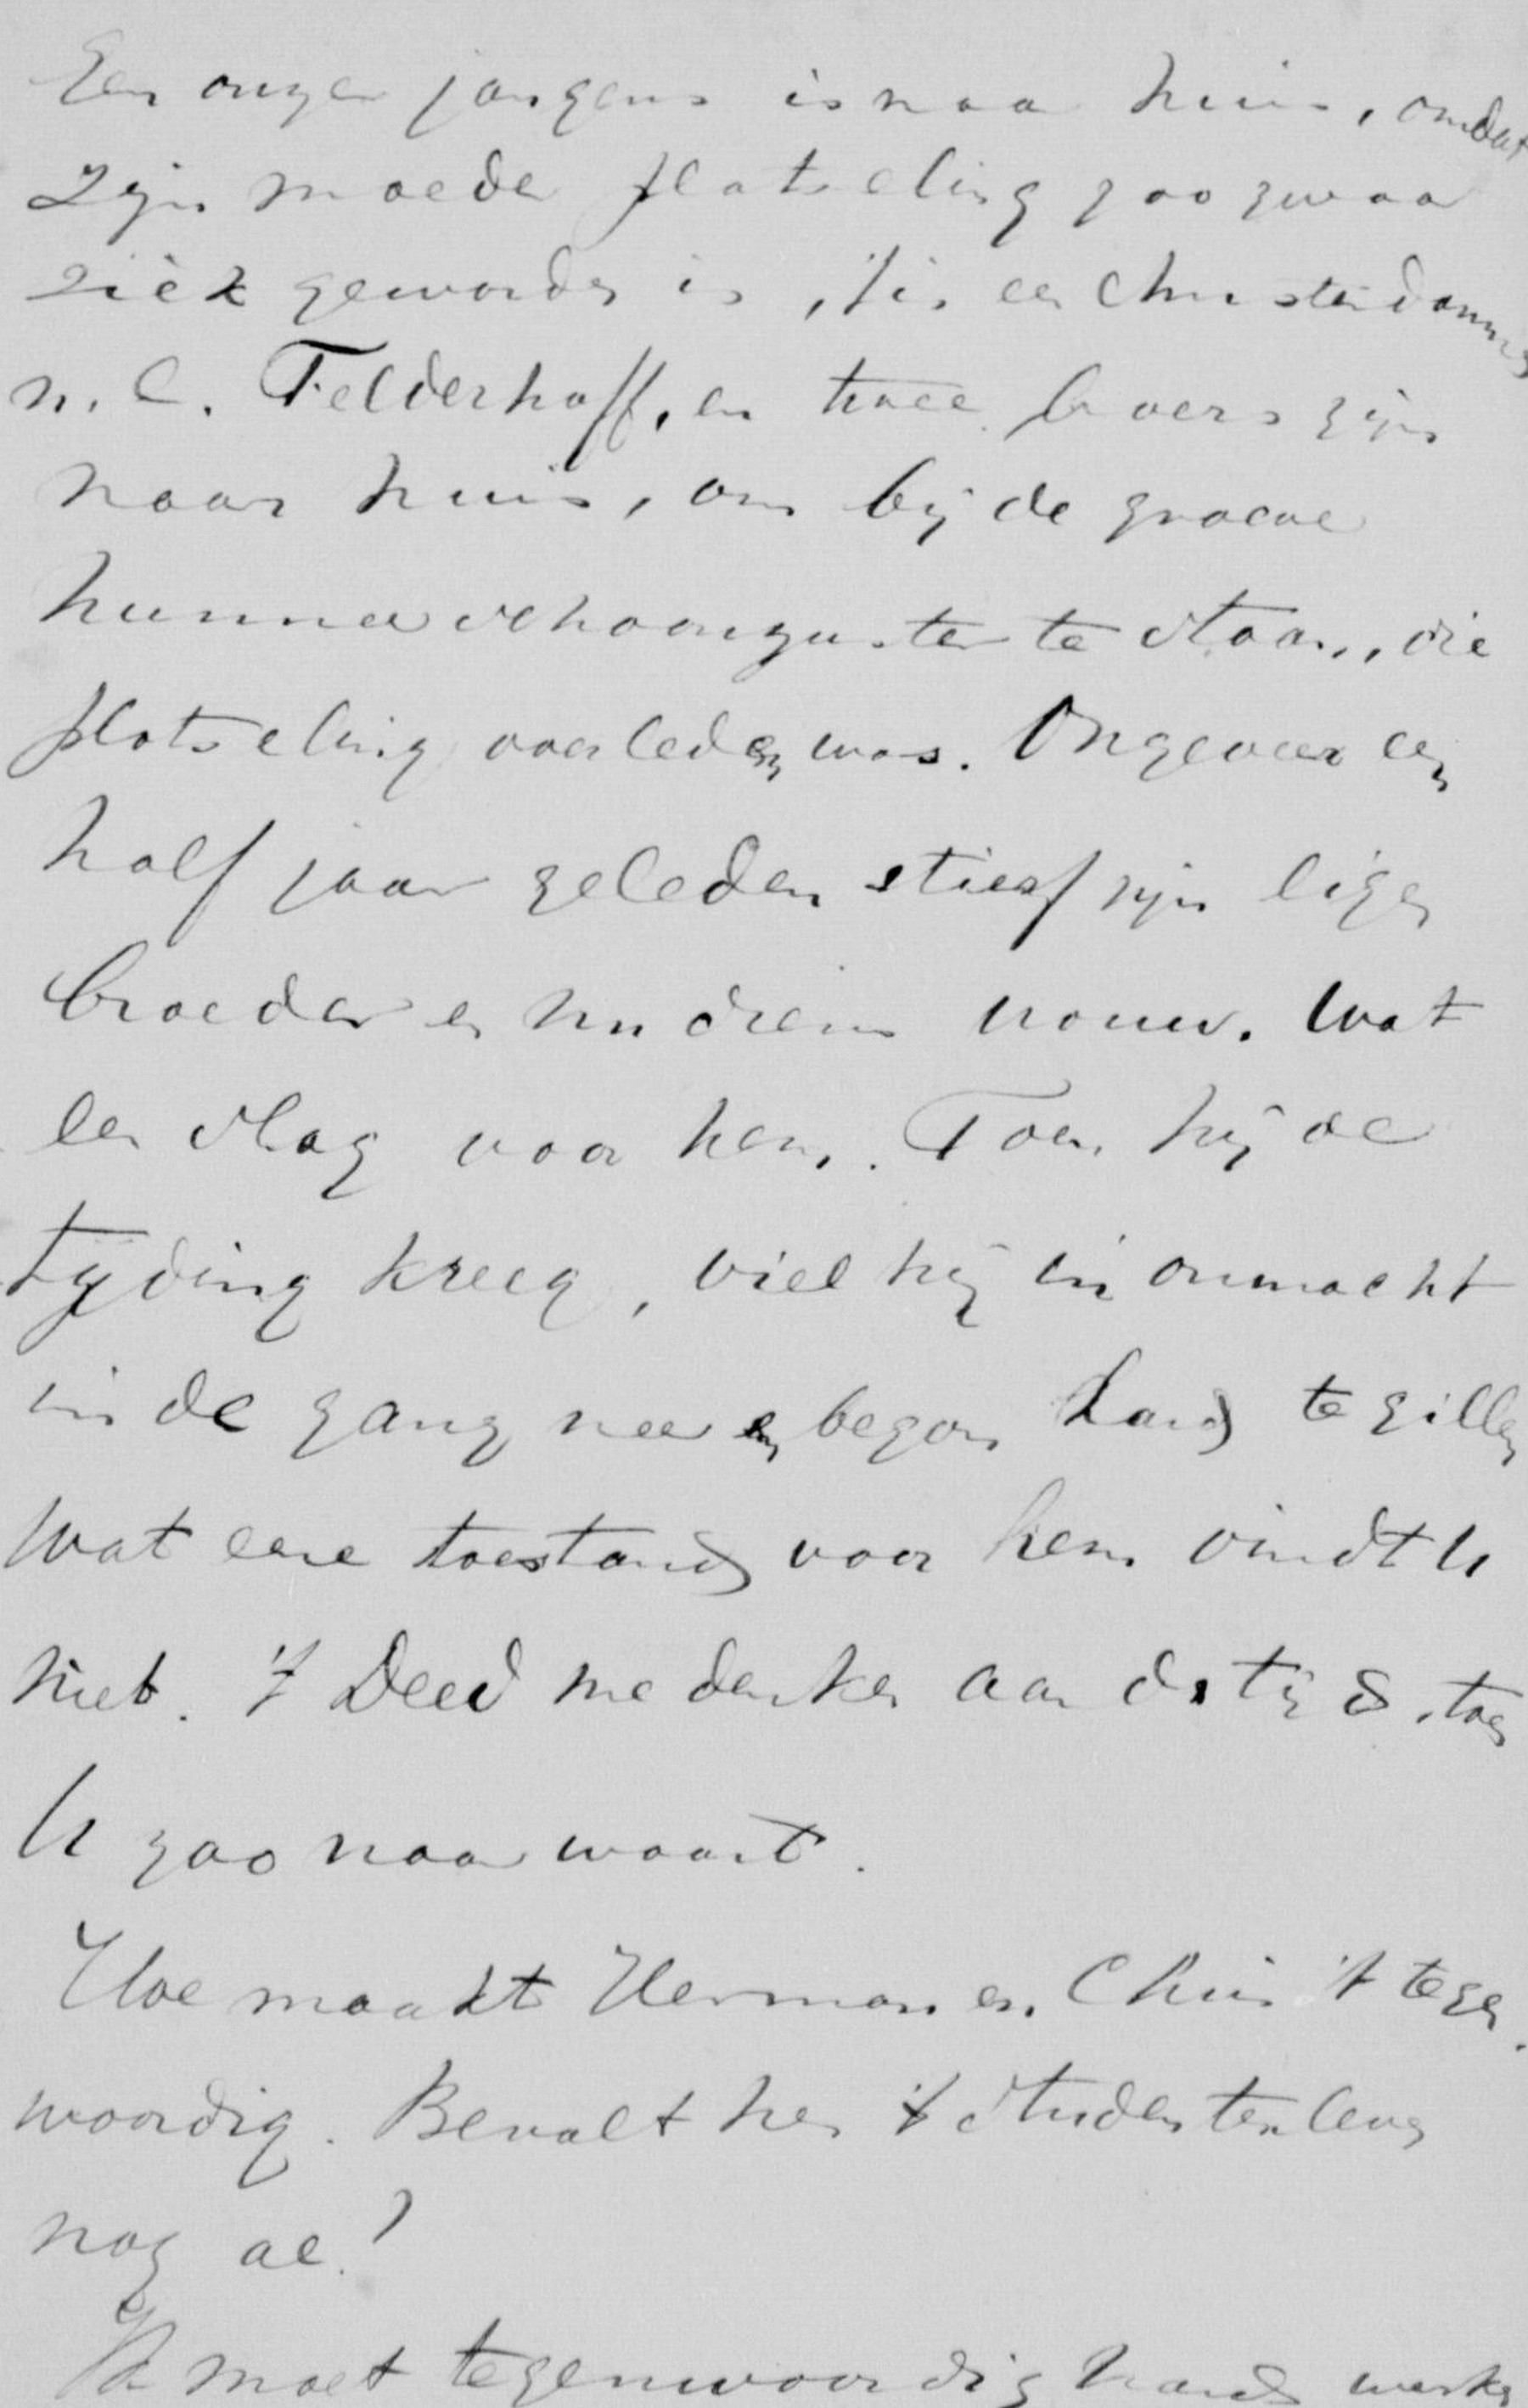 Een onzer jongens is naar huis, omdat
zijn moeder plotseling zoo zwaar
ziek geworden is, 't is een Amsterdammer
n.l. Felderhoff, en twee broers zijn
naar huis, om bij de groeve
hunner schoonzuster te staan, die
plotseling overleden was. Ongeveer een
half jaar geleden stierf zijn eigen
broeder en nu diens vrouw. Wat
een slag voor hem. Toen hij de
tijding kreeg, viel hij in onmacht
in de gang neer en begon hard te gillen
Wat eene toestand voor hem vindt U
niet. 't Deed me denken aan de tijd, toen
U zoo naar waart.
Hoe maakt Herman en Chris 't tegen.
woordig. Bevalt hen 't studentenleven
nog al?
Ik moet tegenwoordig hard werken